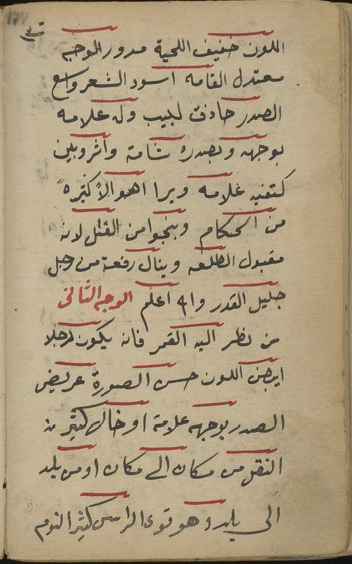 اللون خفيف اللحية مدور الوجه
معتدل القامه اسود الشعر واسع
الصدر حاذق لبيب وله علامه
بوجهه وبصدره شامة واثر وبين
كتفيه علامه ويرا اهوالا كثيره
من الحكام وينجوا من القتل لانه
مقبول الطلعه وينال رفعة من رجل
جليل القدر والله اعلم الوجه الثانى
من نظر اليه القمر فانه يكون رجلا
ابيض اللون حسن الصورة عريض
الصدر بوجهه علامة او خال كثير
النقل من مكان الى مكان او من بلد
الى بلد وهو قوى الراس كثير النوم